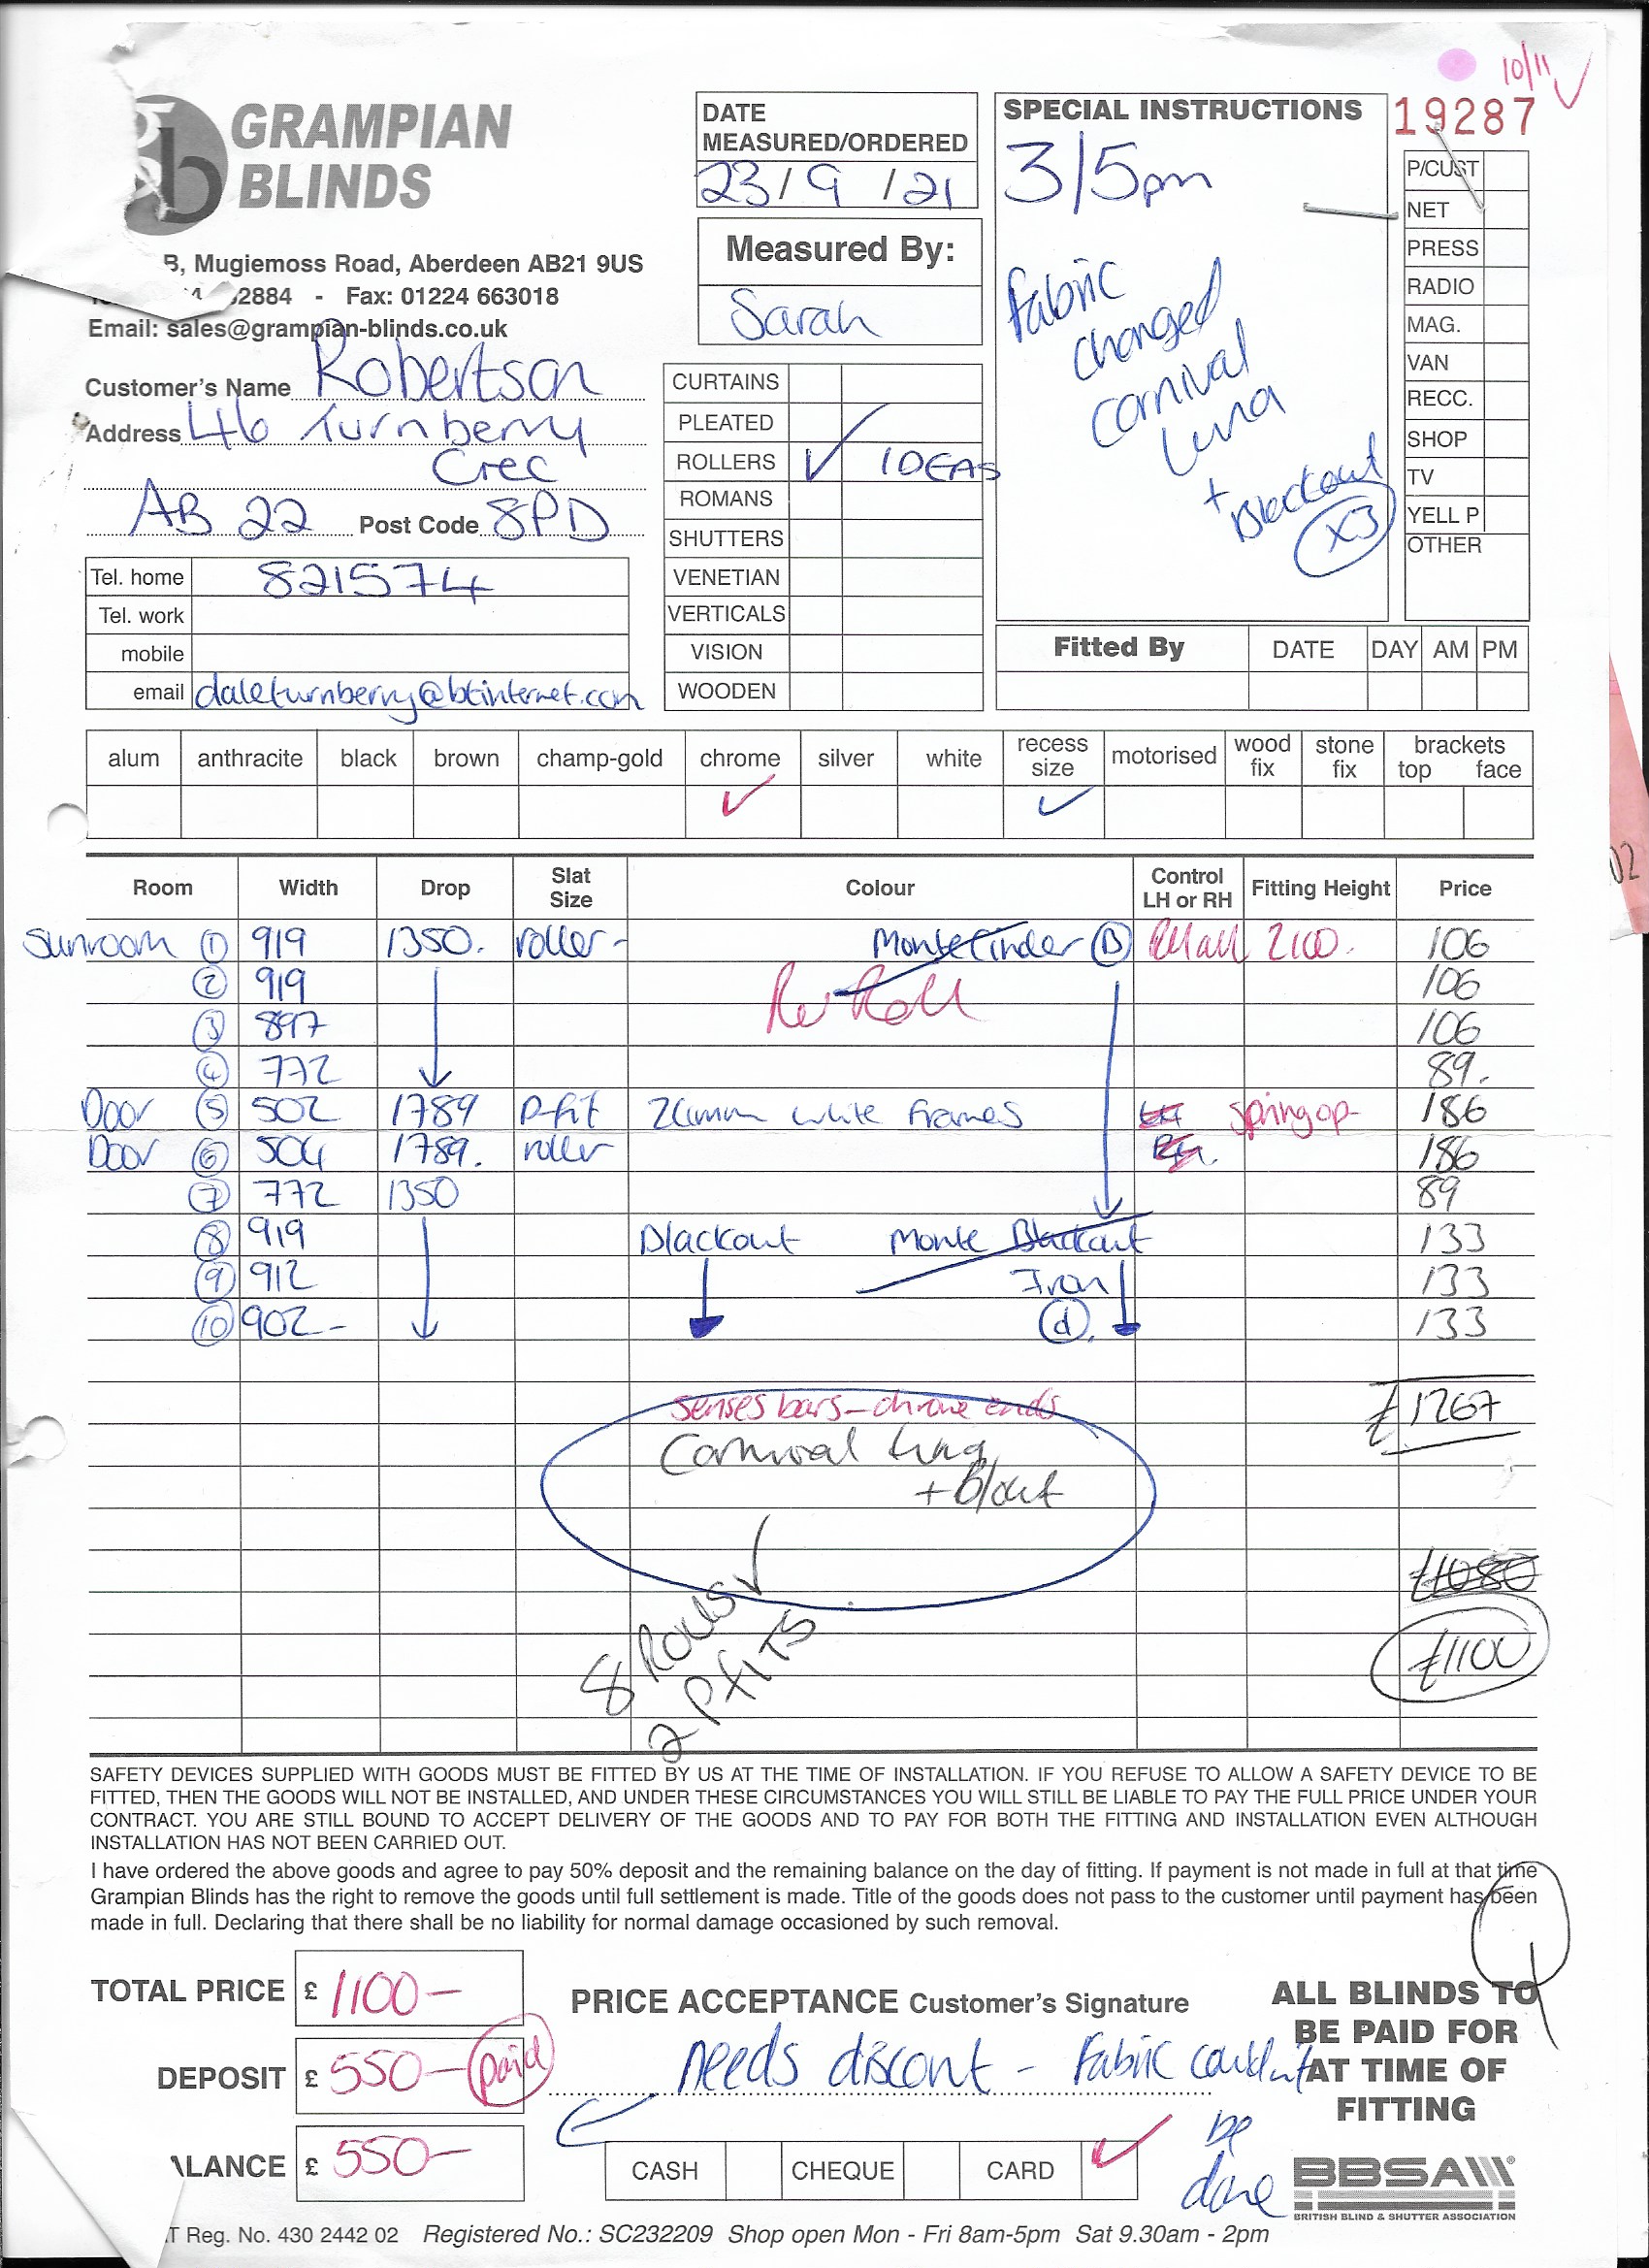 10/11
19287
GRAMPIAN
BLINDS
B, Mugiemoss Road, Aberdeen AB21 9US
2884 - Fax: 01224 663018
Email: sales@grampian-blinds.co.uk
Customer's Name Robertson
Address 46 Turnberry
Cres
AB 22 Post Code 8PD
Tel. home 821574
Tel. work
mobile
email daleturnberry@btinternet.com
DATE
MEASURED/ORDERED
23/9/21
Measured By:
Sarah
CURTAINS
PLEATED
ROLLERS ✓ IDEAS
ROMANS
SHUTTERS
VENETIAN
VERTICALS
VISION
WOODEN
SPECIAL INSTRUCTIONS
3/5pm
Fabric
changed
carnival
Luna
+ Blackout
x3
P/CUST
NET
PRESS
RADIO
MAG.
VAN
RECC.
SHOP
TV
YELL P
OTHER
Fitted By DATE DAY AM PM
alum anthracite black brown champ-gold chrome silver white recess size motorised wood fix stone fix brackets top face
✓ ✓
Room Width Drop Slat Size Colour Control LH or RH Fitting Height Price
Sunroom 1 919 1350. roller- Monte Cinder B RH all 2100. 106
2 919 Re-Roll 106
3 897 106
4 772 89.
Door 5 502 1789 P-fit 26mm white frames LH Spring op- 186
Door 6 504 1789. roller RH. 186
7 772 1350 89
8 919 Blackout Monte Blackout 133
9 912 Iron 133
10 902- d. 133
senses bars-chrome ends £1267
Carnival Luna
+ B/out
£1080
8 Rolls ✓
2 PFITS
£1100
SAFETY DEVICES SUPPLIED WITH GOODS MUST BE FITTED BY US AT THE TIME OF INSTALLATION. IF YOU REFUSE TO ALLOW A SAFETY DEVICE TO BE
FITTED, THEN THE GOODS WILL NOT BE INSTALLED, AND UNDER THESE CIRCUMSTANCES YOU WILL STILL BE LIABLE TO PAY THE FULL PRICE UNDER YOUR
CONTRACT. YOU ARE STILL BOUND TO ACCEPT DELIVERY OF THE GOODS AND TO PAY FOR BOTH THE FITTING AND INSTALLATION EVEN ALTHOUGH
INSTALLATION HAS NOT BEEN CARRIED OUT.
I have ordered the above goods and agree to pay 50% deposit and the remaining balance on the day of fitting. If payment is not made in full at that time
Grampian Blinds has the right to remove the goods until full settlement is made. Title of the goods does not pass to the customer until payment has been
made in full. Declaring that there shall be no liability for normal damage occasioned by such removal.
TOTAL PRICE £ 1100-
DEPOSIT £ 550- paid
ALANCE £ 550-
PRICE ACCEPTANCE Customer's Signature
needs discont - Fabric couldn't
be
done
CASH CHEQUE CARD ✓
ALL BLINDS TO
BE PAID FOR
AT TIME OF
FITTING
BBSA
BRITISH BLIND & SHUTTER ASSOCIATION
T Reg. No. 430 2442 02 Registered No.: SC232209 Shop open Mon - Fri 8am-5pm Sat 9.30am - 2pm